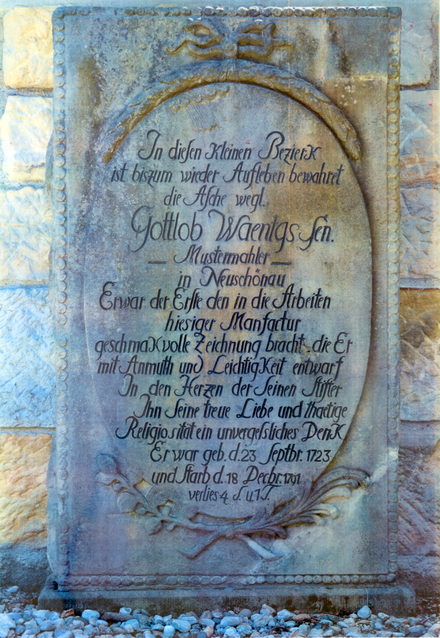 In diesen Kleinen BezierK
ist biszum wieder Aufleben bewahret
die Asche wegl.
Gottlob Waentgs. Sen.
— Mustermahler —
in Neuschönau
Er war der Erste den in die Arbeiten
hiesiger Manfactur
geschmaKvolle Zeichnung bracht. die Er
mit Anmuth und LeichtigKeit entwarf
In den Herzen der Seinen Stifter
Ihn Seine treue Liebe und thadige
Religiosität ein unvergesliches DenK
Er war geb. d. 23 Septbr. 1723
und Starb d. 18 Decbr. 1791
verlies 4. S. u. 1 T.